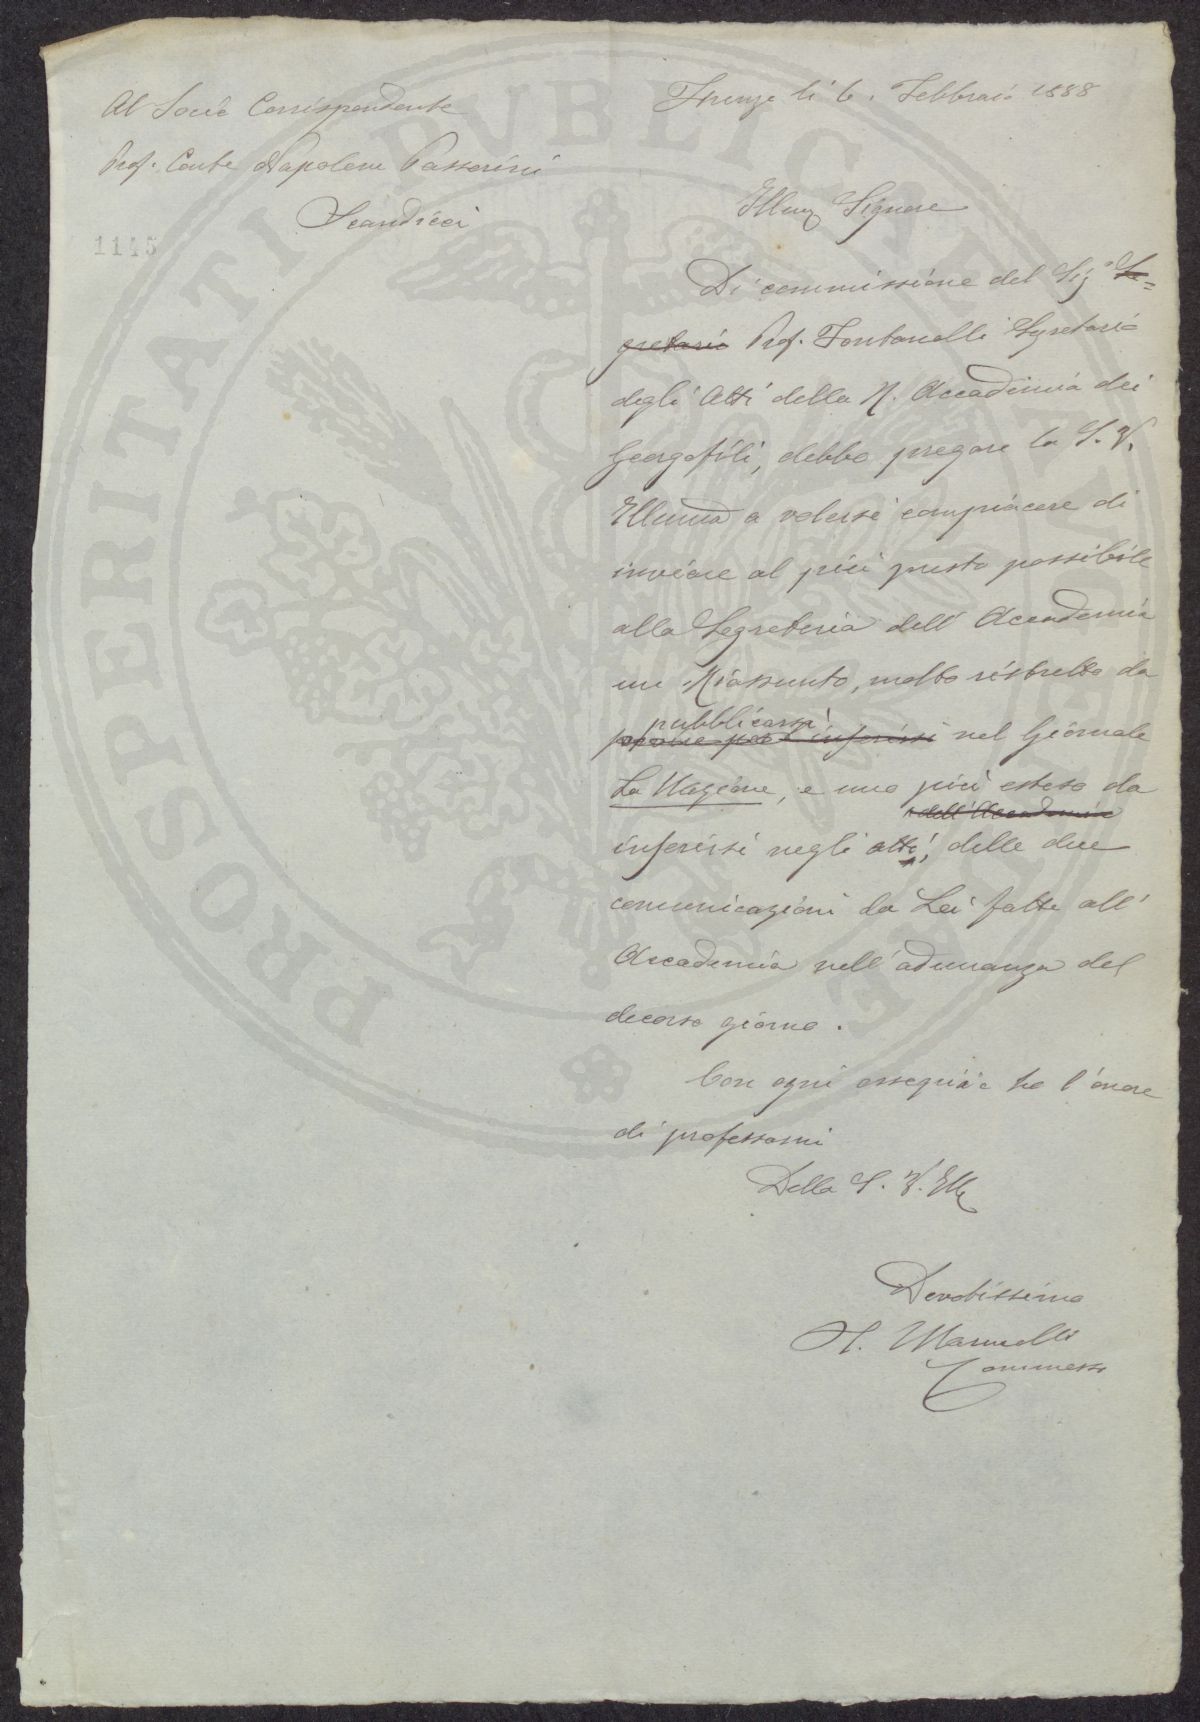 Firenze lì 6. Febbraio 1888
Al Socio Corrispondente
Prof. Conte Napoleone Passerini
Scandicci
1145
Illmo Signore
Di commissione del Sigr Se=
gretario Prof. Fontanelli Segretario
degli Atti della R. Accademia dei
Georgofili, debbo pregare la S. V.
Illuma a volersi compiacere di
inviare al più presto possibile
alla Segreteria dell' Accademia
un Riassunto, molto ristretto da
pubblicarsi
inserirsi nel Giornale
La Nazione, e uno più esteso da
dell'Accademia
inserirsi negli atti, delle due
comunicazioni da Lei fatte all'
Accademia nell'adunanza del
decorso giorno.
Con ogni ossequio ho l'onore
di professarmi
Della S. V. Illma
Devotissimo
Marucelli
Commesso
PROSPERITATI PVBLICAE AVGENDAE